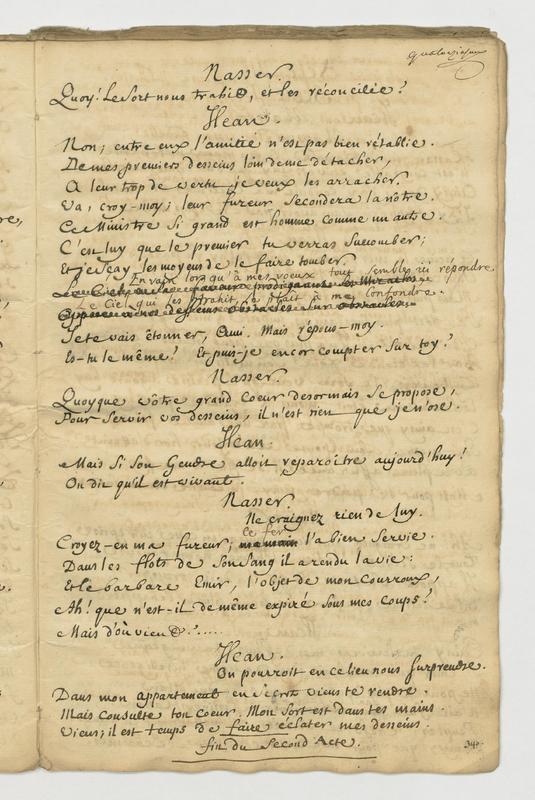 Nasser.
Quoy! Le Sort nous trahit, et les réconcilie?
Hean.
Non; entre eux l'amitié n'est pas bien rétablie.
De mes premiers desseins loin de me détacher,
A leur trop de vertu je veux les arracher.
Va, croy-moy; leur fureur secondera la nôtre.
Ce Ministre si grand est homme comme un autre.
C'est luy que le premier tu verras succomber;
Et je sçay les moyens de le faire tomber.
En vain lorsqu'à mes voeux tout semble ici répondre
Le Ciel qui les trahit, se plait à me confondre.
Je te vais étonner, Ami. Mais répons-moy.
Es-tu le même? Et puis-je encor compter sur toy?
Nasser.
Quoyque vôtre grand coeur desormais se propose,
Pour servir vos desseins, il n'est rien que je n'ose.
Hean.
Mais si son Gendre alloit reparoître aujourd'huy!
On dit qu'il est vivant.
Nasser.
Ne craignez rien de luy.
ce fer
Croyez-en ma fureur; ma main l'a bien servie.
Dans les flots de son sang il a rendu la vie:
Et le barbare Emir, l'objet de mon courroux,
Ah! que n'est-il de même expiré sous mes coups?
Mais d'où vient?.....
Hean.
On pourroit en ce lieu nous surprendre.
Dans mon appartement en secret viens te rendre.
Mais consulte ton coeur. Mon sort est dans tes mains.
Viens; il est temps de faire éclater mes desseins.
fin du Second Acte.